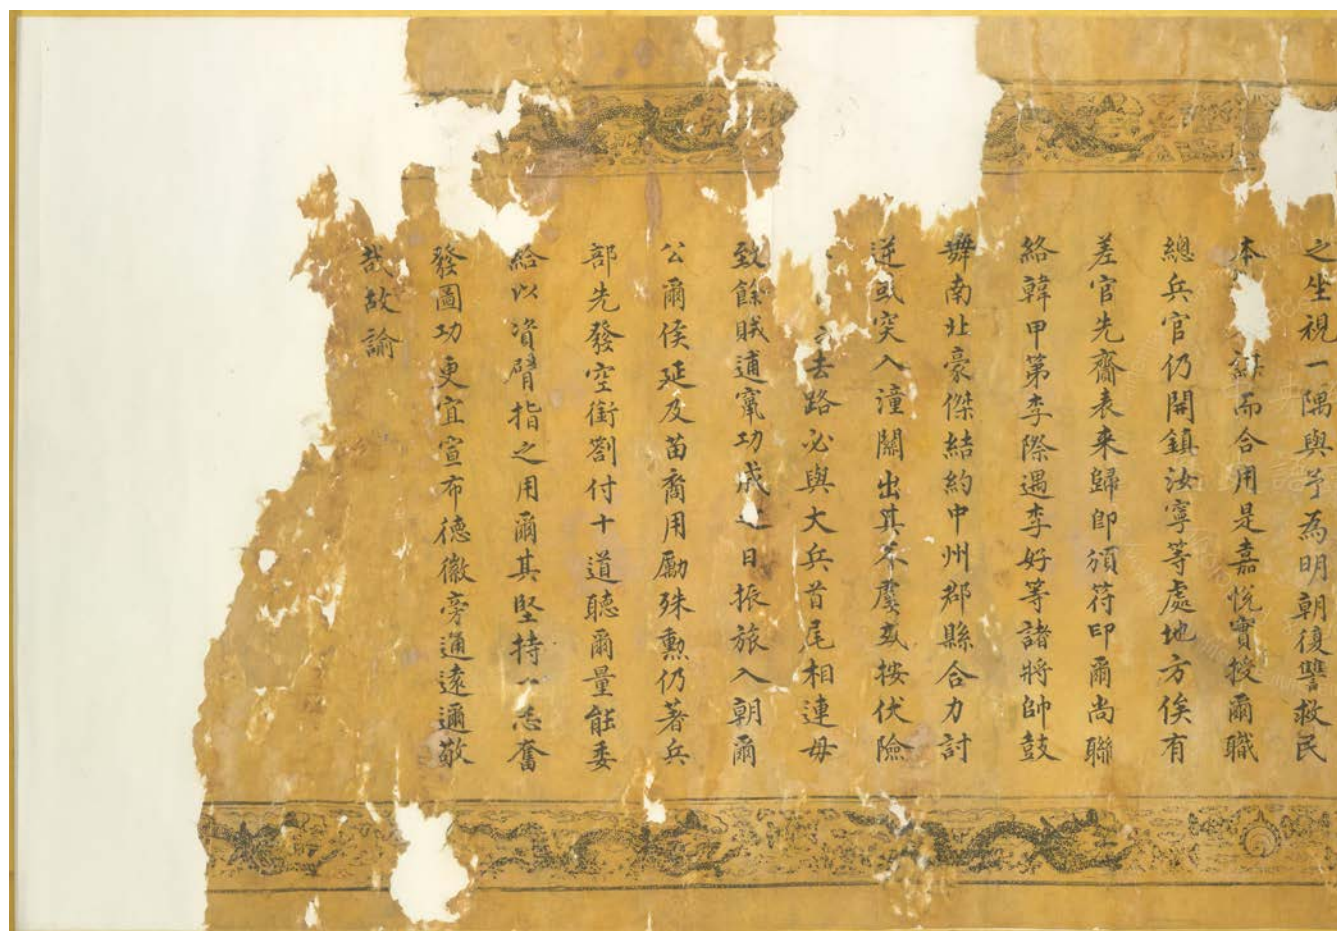 之坐視一隅與予為明朝復讐救民
本而合用是嘉悅實授爾職
總兵官仍開鎮汝寧等處地方俟有
差官先齎表来歸即頒符印爾尚聯
絡韓甲第李際遇李好等諸將帥鼓
舞南北豪傑結約中州郡縣合力討
逆或突入潼關出其不虞或按伏險
去路必與大兵首尾相連毋
致餘賊逋竄功成之日振旅入朝爾
公爾侯延及苗裔用勵殊勲仍著兵
部先發空銜劄付十道聽爾量能委
給以資臂指之用爾其堅持一志奮
發圖功更宜宣布德徽旁通遠邇敬
哉故諭